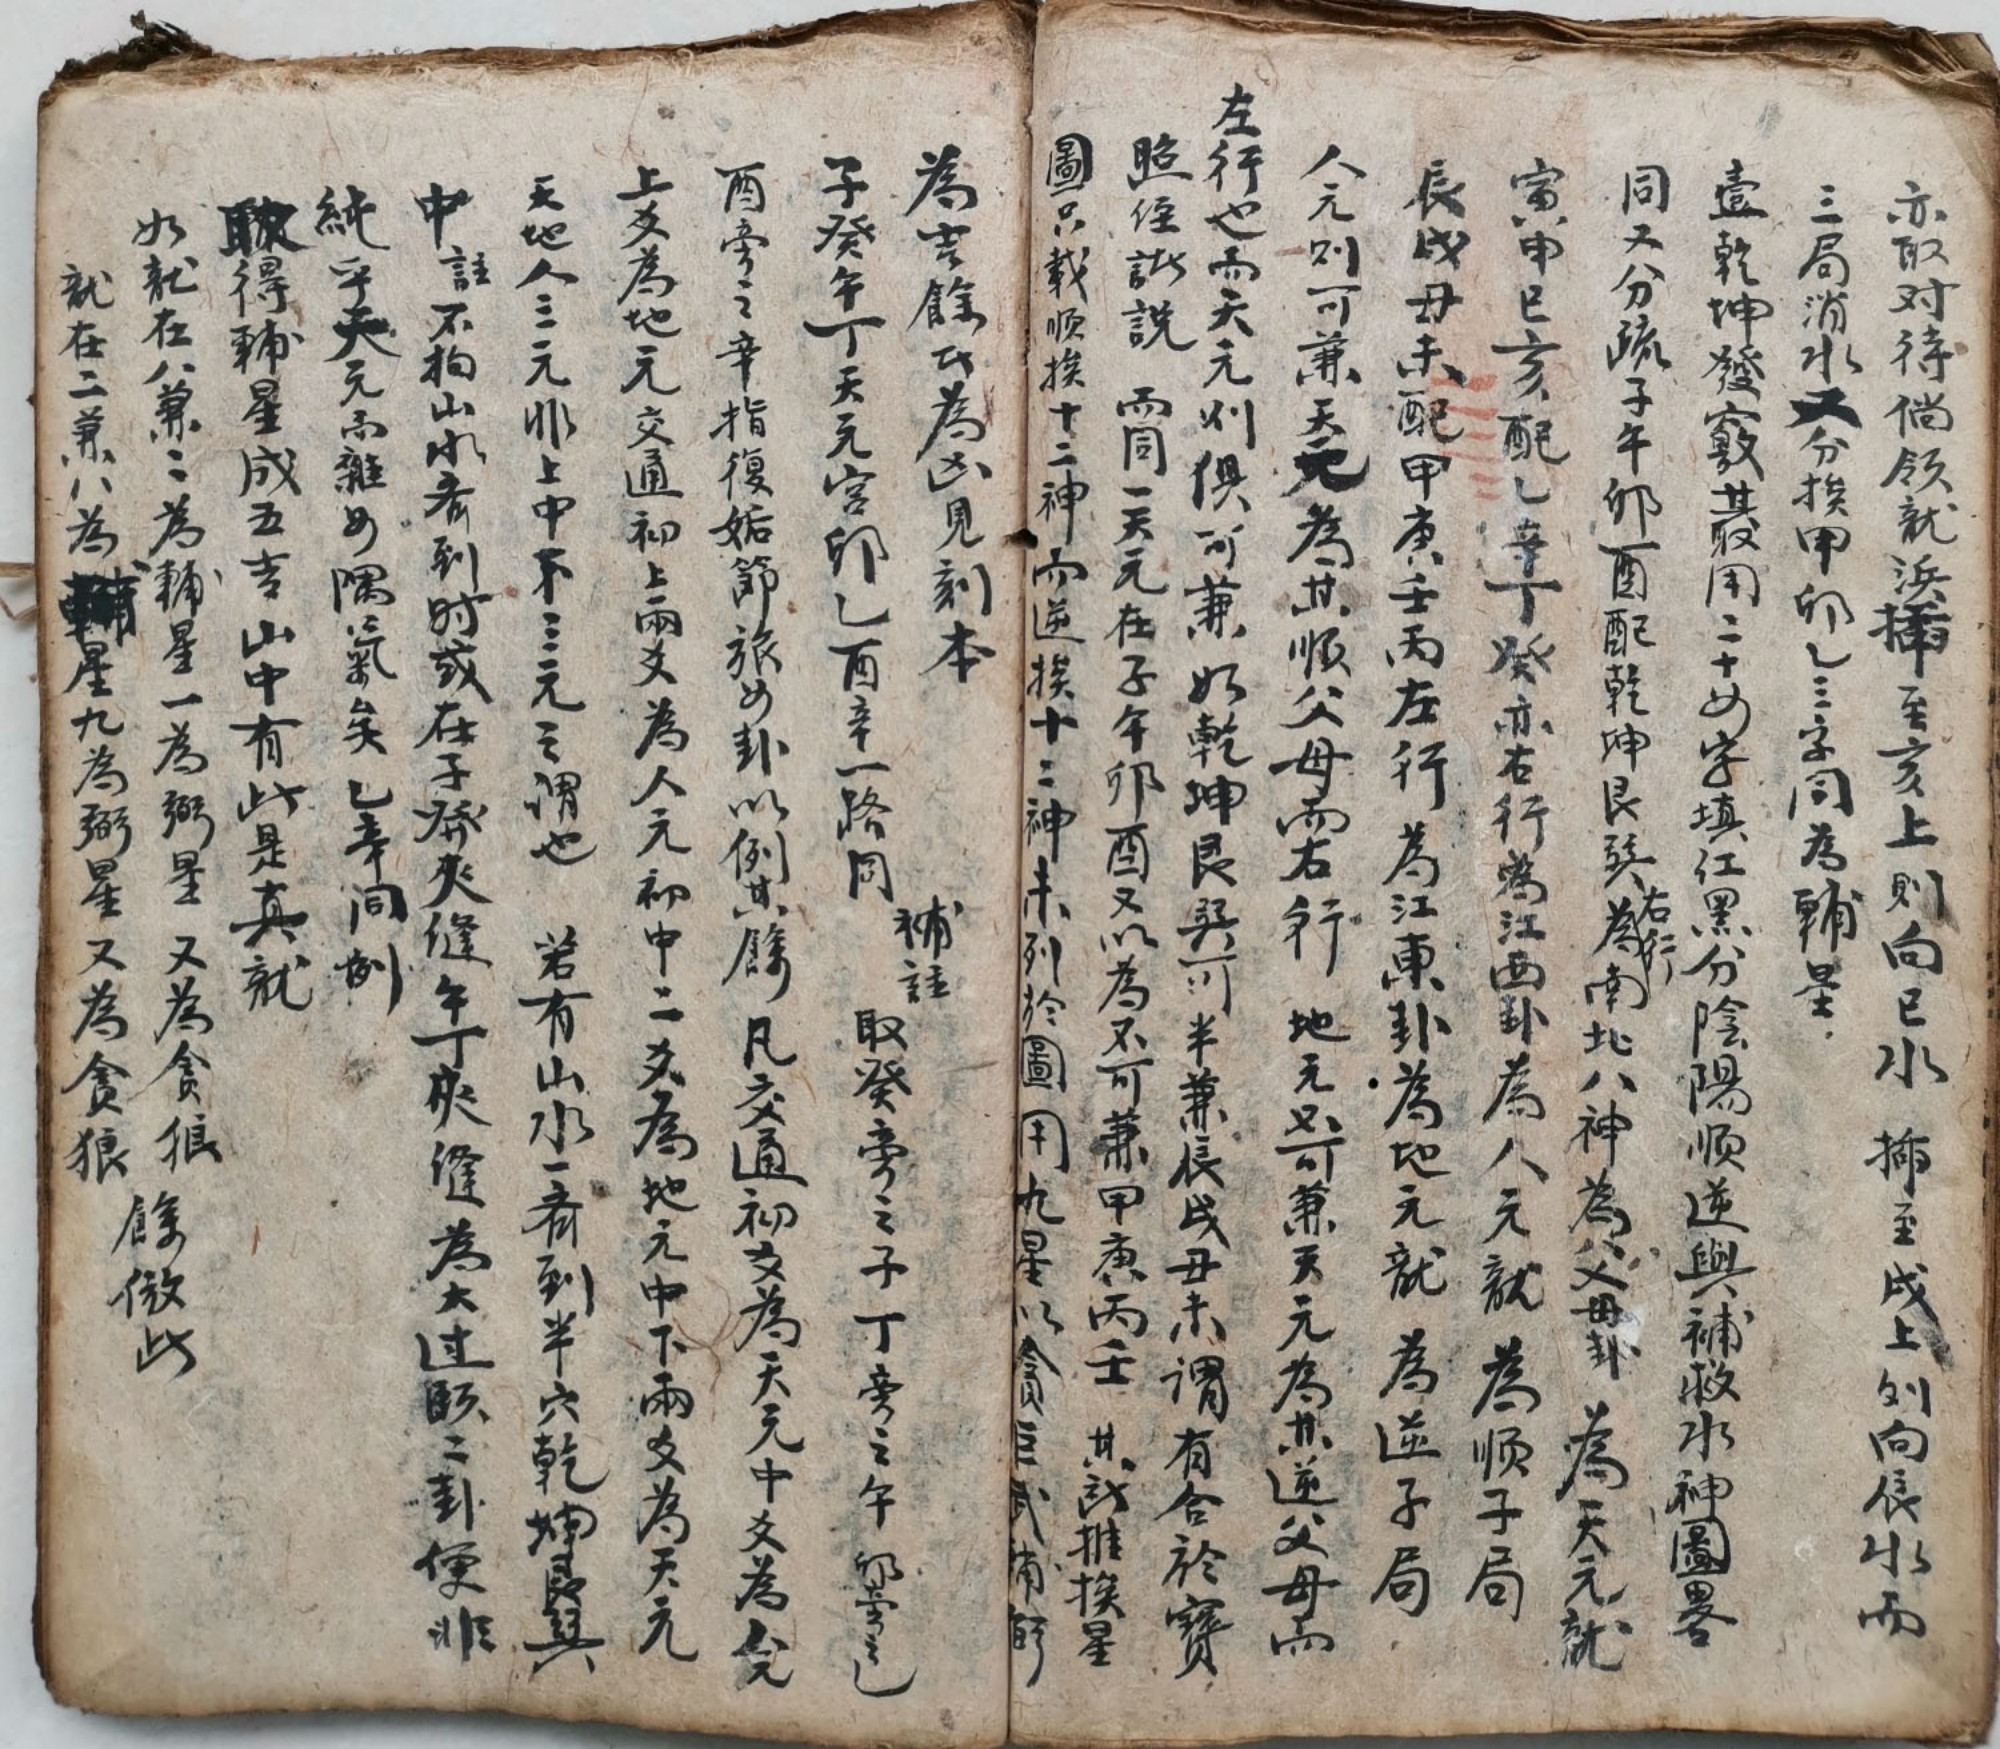 亦取对待倘领龙浜插至亥上則向巳水 插至戌上则向辰水而
三局消水又分挨甲卯乙三字同為輔星
壹乾坤發竅其最用二十四字填红黑分陰陽顺逆與補救水神圖畧
同又分疏子午卯酉配乾坤艮巽右行為南北八神為父母卦 為天元龍
寅申巳亥配乙辛丁癸亦右行為江西卦為人元龍 為順子局
辰戌丑未配甲庚壬丙左行為江東卦為地元龍 為逆子局
人元则可兼天元為其順父母而右行 地元不可兼天元為其逆父母而
左行也而天元则俱可兼如乾坤艮巽可半兼辰戌丑未謂有合於寶
照經諸説 而同一天元在子午卯酉又以為不可兼甲庚丙壬 其訣推挨星
圖只载顺挨十二神而逆挨十二神未列於圖用九星以貪巨武輔弼
為吉餘氏為凶見刻本
子癸午丁天元宮卯乙酉辛一路同 補註 取癸旁之子丁旁之午 卯旁之乙
酉旁之辛指復姤節旅四卦以例其餘 凡交通初爻為天元中爻為人元
上爻為地元交通初上兩爻為人元初中二爻為地元中下兩爻為天元
天地人三元非上中下三元之谓也 若有山水一看到半穴乾坤艮巽
中 註不拘山水看到时或在子癸夾縫午丁夾縫為大过頤二卦便非
純乎天元而雜四隅之氣矣乙辛同例
取得輔星成五吉山中有此是真龍
如龍在八兼二為輔星一為弼星又為貪狼
龍在二兼八為輔星九為弼星又為貪狼 餘倣此